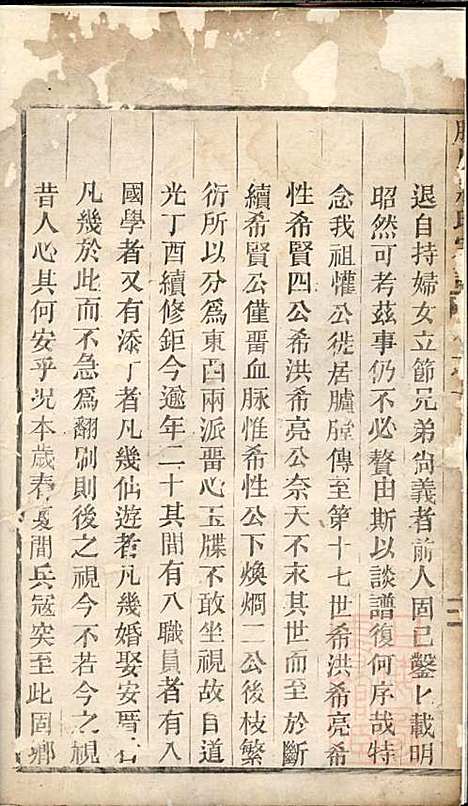 退自持婦女立節兄弟尙義者前人固已鑿匕載明
昭然可考茲事仍不必贅由斯以談譜復何序哉特
念我祖懽公徙居臚膛傳至第十七世希洪希亮希
性希賢四公希洪希亮公奈天不永其世而至於斷
續希賢公僅畱血脉惟希性公下煥烱二公後枝繁
衍所以分爲東西兩派畱心玉牒不敢坐視故自道
光丁酉續修鉅今逾年二十其間有八職員者有入
國學者又有添丁者凡幾仙遊者凡幾婚娶安厝者
凡幾於此而不急爲翻刷則後之視今不若今之視
昔人心其何安乎况本歲春夏間兵冦突至此固鄉